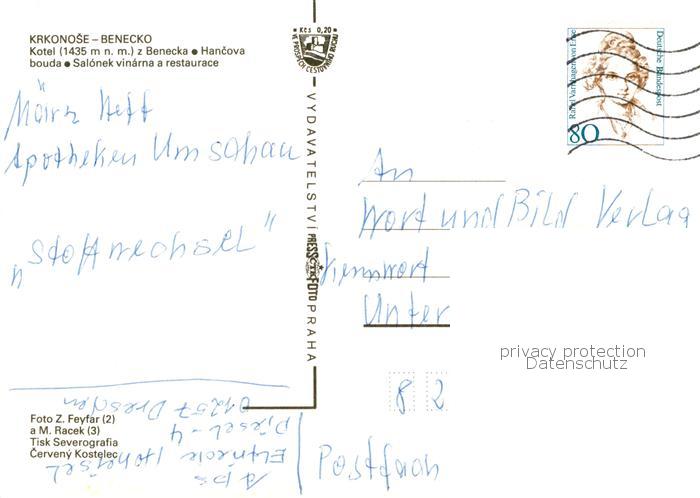 KRKONOŠE – BENECKO
Kotel (1435 m n. m.) z Benecka ● Hančova
bouda ● Salónek vinárna a restaurace
März Heft
Apotheken Umschau
„Stoffwechsel"
Foto Z. Feyfar (2)
a M. Racek (3)
Tisk Severografia
Červený Kostelec
Abs
Hoheisel
Diesel-4
01257 Dresden
Kčs 0,20
VE PROSPĚCH CESTOVNÍHO RUCHU
VYDAVATELSTVÍ PRESSFOTO PRAHA
ČTK
Rahel Varnhagen von Ense
Deutsche Bundespost
80
An
Wort und Bild Verlag
Kennwort
Unter
82
Postfach
privacy protection
Datenschutz